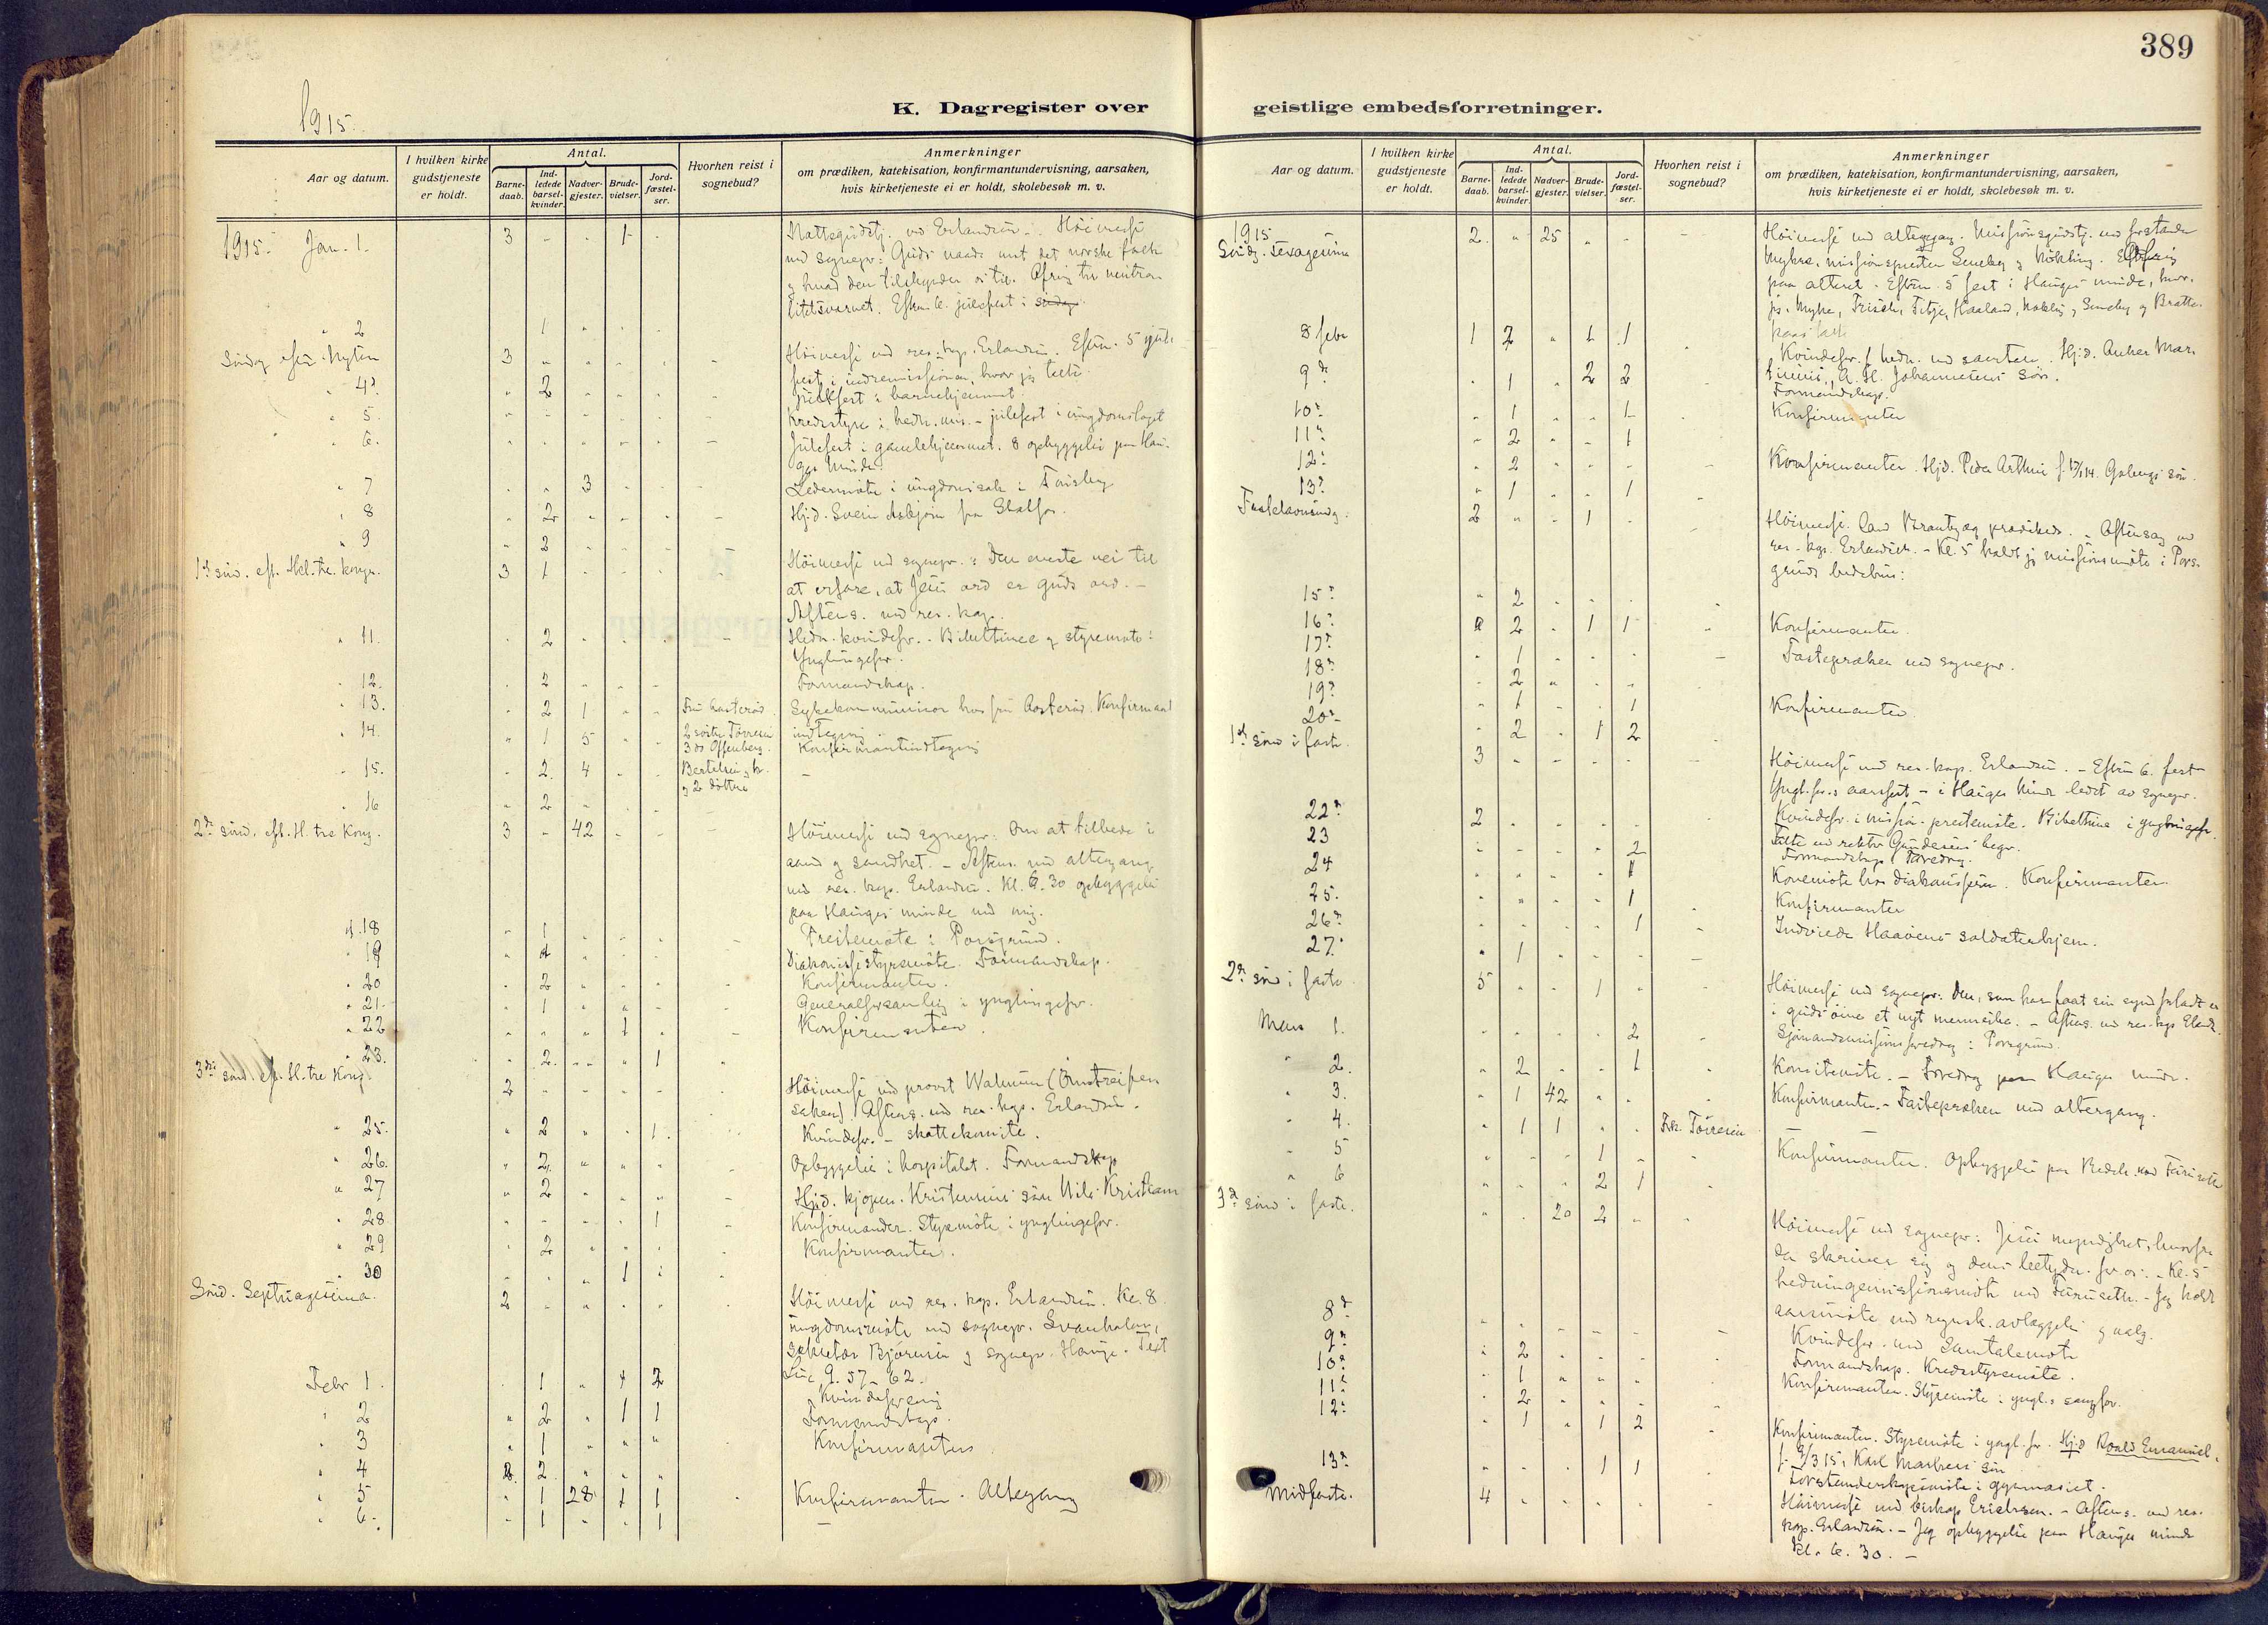 389
K. Dagregister over geistlige embedsforretninger.
1915.
Aar og datum.
I hvilken kirke gudstjeneste er holdt.
Antal.
Barne-daab.
Ind-ledede barsel-kvinder.
Nadver-gjester.
Brude-vielser.
Jord-fæstel-ser.
Hvorhen reist i sognebud?
Anmerkninger
om prædiken, katekisation, konfirmantundervisning, aarsaken,
hvis kirketjeneste ei er holdt, skolebesøk m. v.
1915. Jan. 1. 3 - - 1 - Erlandsen. - Høimesse
ved sognepr: Guds naade mot det norske folk
og hvad den tilskynder os til. Ofring til neutra-
litetsvernet. Efterm. 6. julefest i
" 2 1
Søndag efter Nytaar 3 Høimesse ved res. kap. Erlandsen. Efterm. 5 jule-
fest i indremissionen, hvor jeg talte
" 4de 2 Julefest i barnehjemmet
" 5. Kredsstyre i hedn. mis. - julefest i ungdomslaget
" 6. Julefest i gamlehjemmet. 8 opbyggelse paa Hau-
ges Minde.
" 7 3 Ledermøte i ungdomssak i
" 8 2 Hj.d. Svein Asbjørn
" 9 2
1ste sønd. eft. Hel. tre. kong. 3 1 Høimesse ved sognepr.: Den eneste vei til
at erfare, at Jesu ord er Guds ord. -
Aftens. ved res. kap.
" 11. 2 Hedn. kvindefor. - Bibeltime og styremøte i
Ynglingefor.
" 12. 2 Formandskap.
" 13. 2 1 Fru Aasterød Sykekommunion hos fru Aasterød. Konfirmant
indtegning
" 14. 1 5 2 søstre Tørresen
3 do Offenberg. Konfirmantindtegning
" 15. 2. 4 Bertelsen
og 2 døttre
" 16 2
2den sønd. eft. H. tre Kong. 3 - 42 Høimesse ved sognepr: Om at tilbede i
aand og sandhet. - Aftens. med altergang
ved res. kap. Erlandsen. Kl. 6.30 opbyggelse
paa Hauges minde ved mig.
" 18 1 Prestemøte i Porsgrund.
" 19 Diakonissestyremøte. Formandskap.
" 20 2 Konfirmanter.
" 21 1 Generalforsamling i ynglingefor.
" 22 1 Konfirmanter.
" 23. 2 1
3die sønd. eft. H. tre Kong. 2 Høimesse ved provst Walnum
saken) Aftens. ved res. kap. Erlandsen.
" 25. 2 1. Kvindefor. - skattekomite.
" 26. 2 Opbyggelse i hospitalet. Formandskap
" 27 2 Hj.d. kjøpm. Kristensens søn Nils Kristian
" 28. 1 Konfirmander. Styremøte i ynglingefor.
" 29 2 Konfirmanter.
" 30 1
Sønd. Septuagesima. 2 Høimesse ved res. kap. Erlandsen. Kl. 8
ungdomsmøte ved sognepr. Svanholm,
sekretær Bjørnsen og sognepr. Hauge. Text
Luc 9. 57-62.
Febr 1. 1 1 2 Kvindeforening
" 2 2 1 1 Formandskap.
" 3 1 Konfirmanter
" 4 2
" 5 1 28. 1 1 Konfirmanter. Altergang
" 6. 1 1
Aar og datum.
I hvilken kirke gudstjeneste er holdt.
Antal.
Barne-daab.
Ind-ledede barsel-kvinder.
Nadver-gjester.
Brude-vielser.
Jord-fæstel-ser.
Hvorhen reist i sognebud?
Anmerkninger
om prædiken, katekisation, konfirmantundervisning, aarsaken,
hvis kirketjeneste ei er holdt, skolebesøk m. v.
1915
Søndg. Sexagesima 2. " 25 Høimesse med altergang. Missionsgudstj. ved forstander
Myhre, missionsprester og Nøkling.
paa alteret. Efterm. 5 fest i Hauges minde, hvor
jeg, Myhre, Haaland,
talte
8 febr 1 2 " 1 1 Kvindefor. f. hedn. med samtale. Hj.d.
A. H. Johannesens søn.
9de 1 2 2 Formandskap.
10de 1 1 Konfirmanter
11te 2 1
12te 2 Konfirmanter. Hj.d. Peder Arthur
13de 1 1
Fastelavnsøndg. 2 1 Høimesse. cand. prædiked. - Aftensang ved
res. kap. Erlandsen. - Kl. 5 holdt jeg missionsmøte i Pors-
grunds bedehus.
15de 2
16de 2 1 1 Konfirmanter.
17de 1 Fasteprækен ved sognepr.
18de 2
19de 1 1 Konfirmanter.
20de 2 1 2
1ste sønd i faste. 3 Høimesse ved res. kap. Erlandsen. - Efterm 6. fest
Yngl. for.s aarsfest - i Hauges Minde ledet av sognepr.
22de 2 Kvindefor. i mission. prestemøte. Bibeltime i ynglingefor.
23 2 Talte ved rektor Gundersens begr.
Formandskap. Foredrag.
24 1 Konemøte hos diakonissen. Konfirmanter.
25. 1 Konfirmanter
26de 1 Indviede Haavens soldaterhjem.
27. 1
2den sønd i faste 5 1 Høimesse ved sognepr: Den, som har faat sin synd forladt er
i Guds øine et nyt menneske. - Aftens. ved res. kap Erland.
Mars 1. 2 Sjømandsmissionsforedrag i Porsgrund.
" 2. 2 1 Komitemøte. - Foredrag paa Hauges minde.
" 3. 1 42 Konfirmanter. - Fasteprækén med altergang.
" 4. 1 1 Frk. Tørresen
" 5 1 Konfirmanter. Opbyggelse paa Bedeh. ved
" 6 2 1
3die sønd i faste. 20 2 Høimesse ved sognepr: Jesu myndighet, hvorfra
den skriver sig og dens betydn. for os. - Kl. 5
hedningemissionsmøte ved Furuseth. - Jeg holdt
aarsmøte med regnsk.avlæggelse og valg.
8de Kvindefor. med Samtalemøte
9de 2 Formandskap. Kredsstyremøte.
10de 1 Konfirmanter. Styremøte i yngl.s sangfor.
11te 2
12te 1 1 2 Konfirmanter. Styremøte i yngl. for. Hj.d Roald Emanuel,
f. 9/3 15, Karl søn
13de 1 1 Forstanderskapsmøte i gymnasiet.
Midfaste. 4 Høimesse ved biskop Erichsen. - Aftens. ved res.
kap. Erlandsen. - Jeg opbyggelse paa Hauges minde
kl. 6.30. -